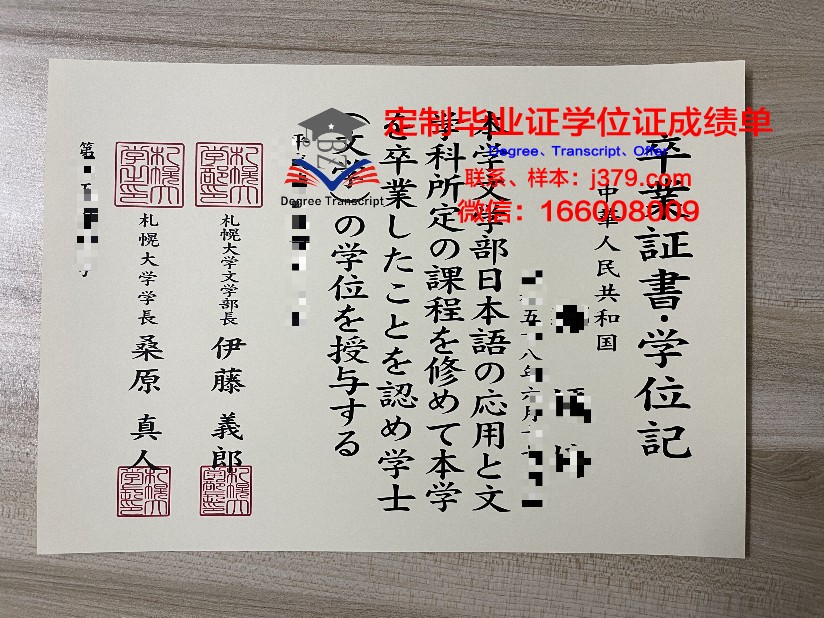 定制毕业证学位证成绩单
Degree、Transcript、Offer
联系、样本：j379.com
微信：166008009
BZ
Degree Transcript
卒業証書・学位記
中華人民共和国
五 八年六月
本学文学部日本語の応用と文
学科所定の課程を修めて本学
を卒業したことを認め学士
（文学）の学位を授与する
平
札幌大学文学部長 伊藤義郎
札幌大学学長 桑原真人
第